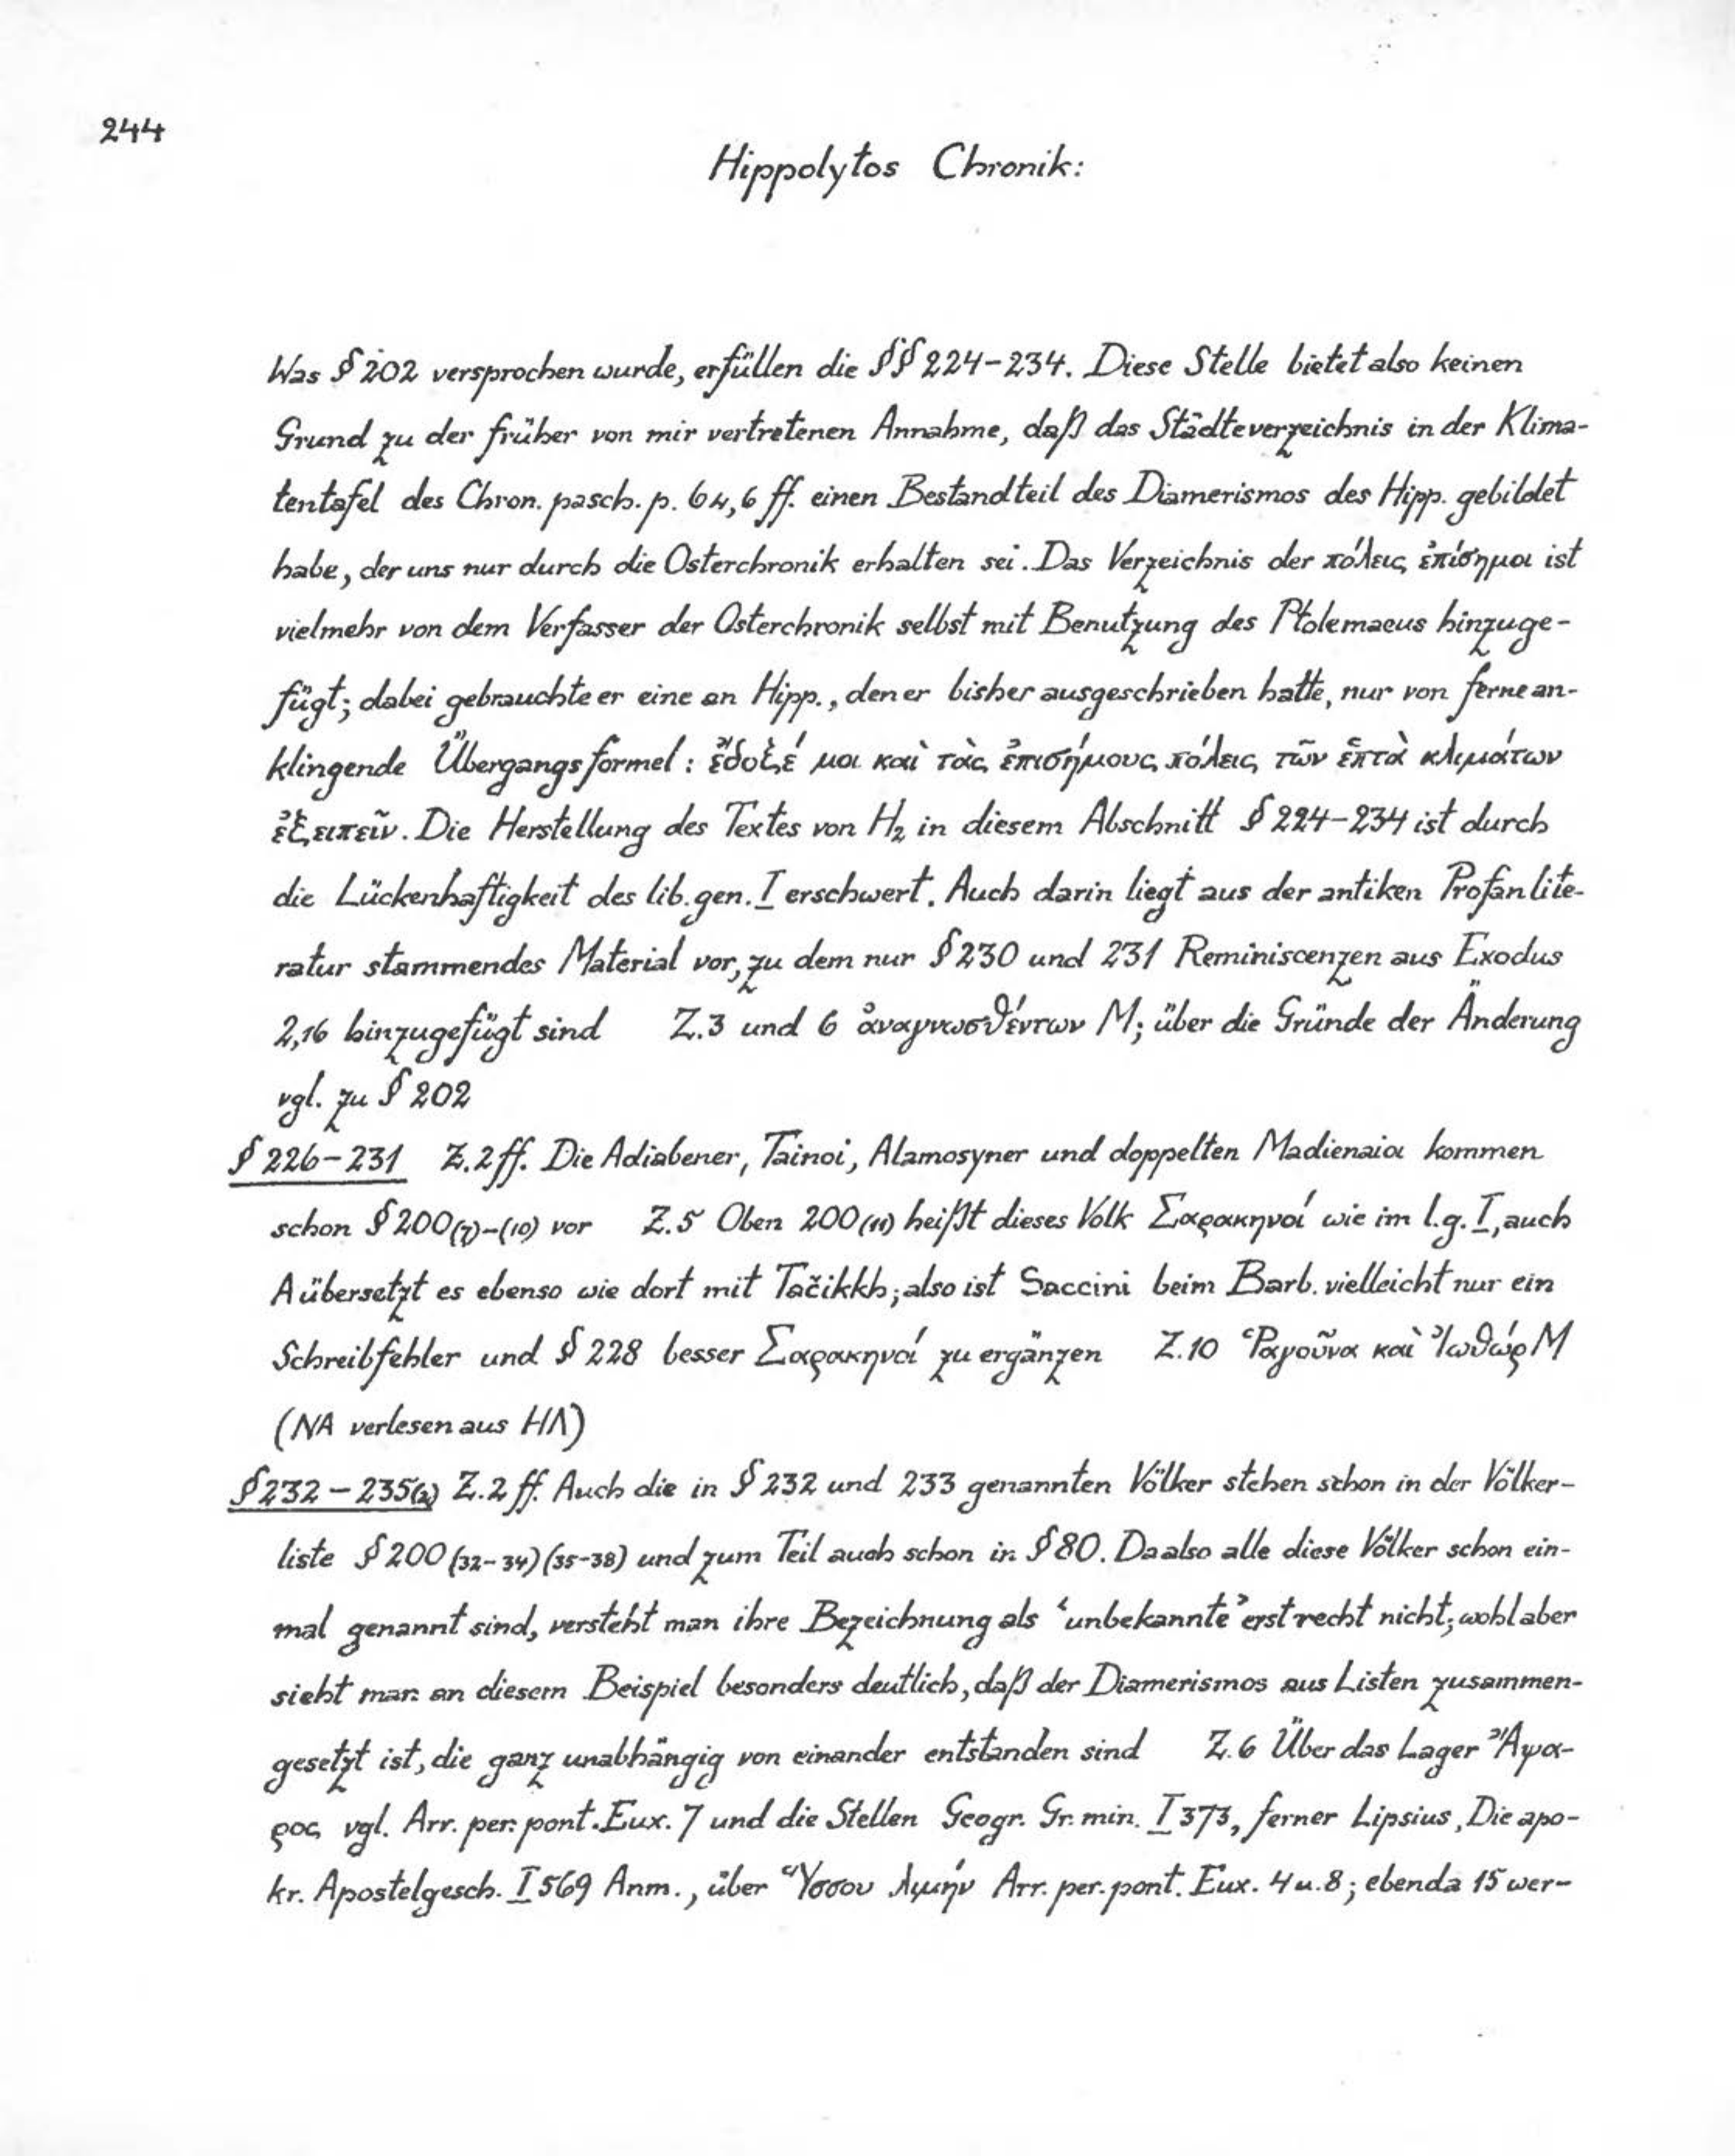 244
Hippolytos Chronik:
Was § 202 versprochen wurde, erfüllen die §§ 224-234. Diese Stelle bietet also keinen
Grund zu der früher von mir vertretenen Annahme, daß das Städteverzeichnis in der Klima-
tentafel des Chron. pasch. p. 64,6 ff. einen Bestandteil des Diamerismos des Hipp. gebildet
habe, der uns nur durch die Osterchronik erhalten sei. Das Verzeichnis der πόλεις ἐπίσημοι ist
vielmehr von dem Verfasser der Osterchronik selbst mit Benutzung des Ptolemaeus hinzuge-
fügt; dabei gebrauchte er eine an Hipp., den er bisher ausgeschrieben hatte, nur von ferne an-
klingende Übergangsformel: ἔδοξέ μοι καὶ τὰς ἐπισήμους πόλεις τῶν ἑπτὰ κλιμάτων
ἐξειπεῖν. Die Herstellung des Textes von H₂ in diesem Abschnitt § 224-234 ist durch
die Lückenhaftigkeit des lib. gen. I erschwert. Auch darin liegt aus der antiken Profanlite-
ratur stammendes Material vor, zu dem nur § 230 und 231 Reminiscenzen aus Exodus
2,16 hinzugefügt sind Z. 3 und 6 ἀναγνωσθέντων M; über die Gründe der Änderung
vgl. zu § 202
§ 226-231 Z. 2 ff. Die Adiabener, Tainoi, Alamosyner und doppelten Madienaioi kommen
schon § 200 (7)-(10) vor Z. 5 Oben 200 (11) heißt dieses Volk Σαρακηνοί wie im l. g. I, auch
A übersetzt es ebenso wie dort mit Tačikkh; also ist Saccini beim Barb. vielleicht nur ein
Schreibfehler und § 228 besser Σαρακηνοί zu ergänzen Z. 10 Ῥαγοῦνα καὶ Ἰωθώρ M
(NA verlesen aus HΛ)
§ 232 - 235(2) Z. 2 ff. Auch die in § 232 und 233 genannten Völker stehen schon in der Völker-
liste § 200 (32-34) (35-38) und zum Teil auch schon in § 80. Da also alle diese Völker schon ein-
mal genannt sind, versteht man ihre Bezeichnung als ‘unbekannte’ erst recht nicht; wohl aber
sieht man an diesem Beispiel besonders deutlich, daß der Diamerismos aus Listen zusammen-
gesetzt ist, die ganz unabhängig von einander entstanden sind Z. 6 Über das Lager Ἄψα-
ρος vgl. Arr. per. pont. Eux. 7 und die Stellen Geogr. Gr. min. I 373, ferner Lipsius, Die apo-
kr. Apostelgesch. I 569 Anm., über Ὕσσου λιμήν Arr. per. pont. Eux. 4 u. 8; ebenda 15 wer-